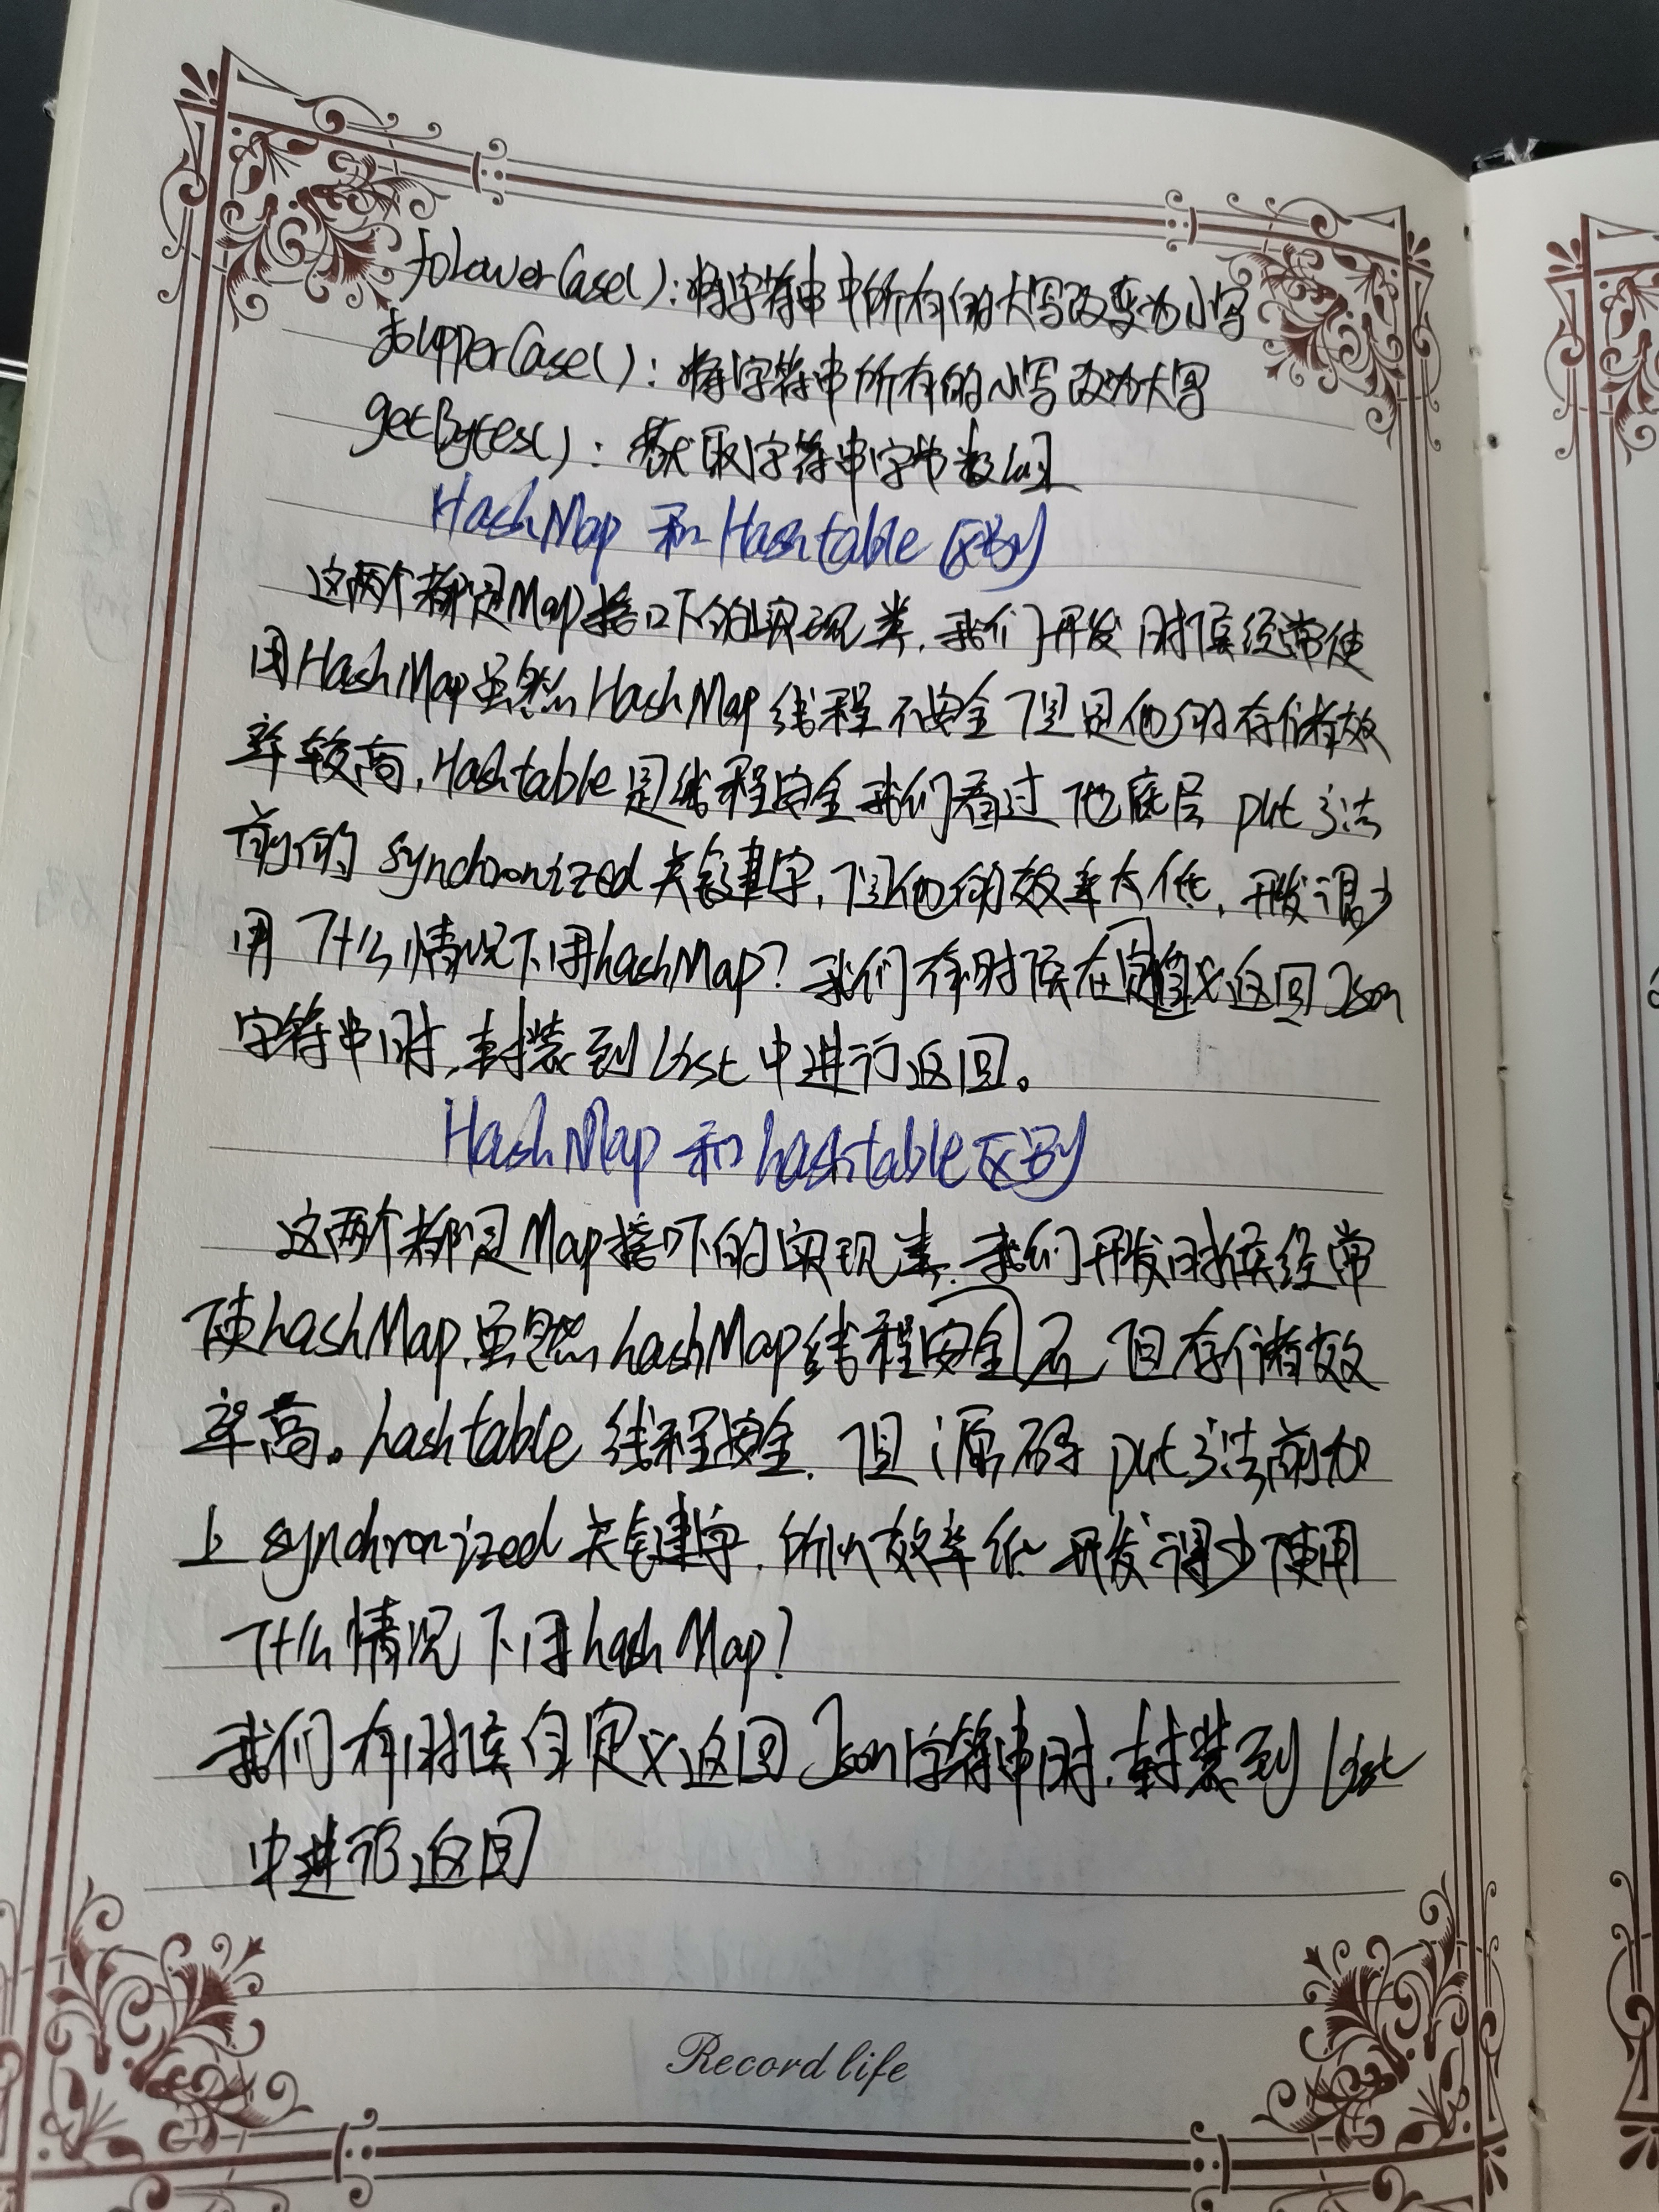 toLowerCase():将字符串中所有的大写改变为小写
toUpperCase():将字符串所有的小写改为大写
getBytes():获取字符串字节数组
HashMap 和 Hashtable 区别
这两个都是Map接口下的实现类,我们开发时候经常使
用HashMap虽然HashMap线程不安全但是他的存储效
率较高,Hashtable是线程安全我们看过他底层 put方法
前的 synchronized关键字,但他的效率太低,开发很少
用 什么情况下用hashMap?我们有时候在自定义返回Json
字符串时,封装到List中进行返回。
HashMap 和 hashtable区别
这两个都是Map接口下的实现类,我们开发时候经常
使hashMap,虽然hashMap线程不安全,但存储效
率高。hashtable 线程安全,但源码 put方法前加
上 synchronized 关键字,所以效率低 开发很少使用
什么情况下用hashMap?
我们有时候自定义返回Json字符串时,封装到List
中进行返回
Record life